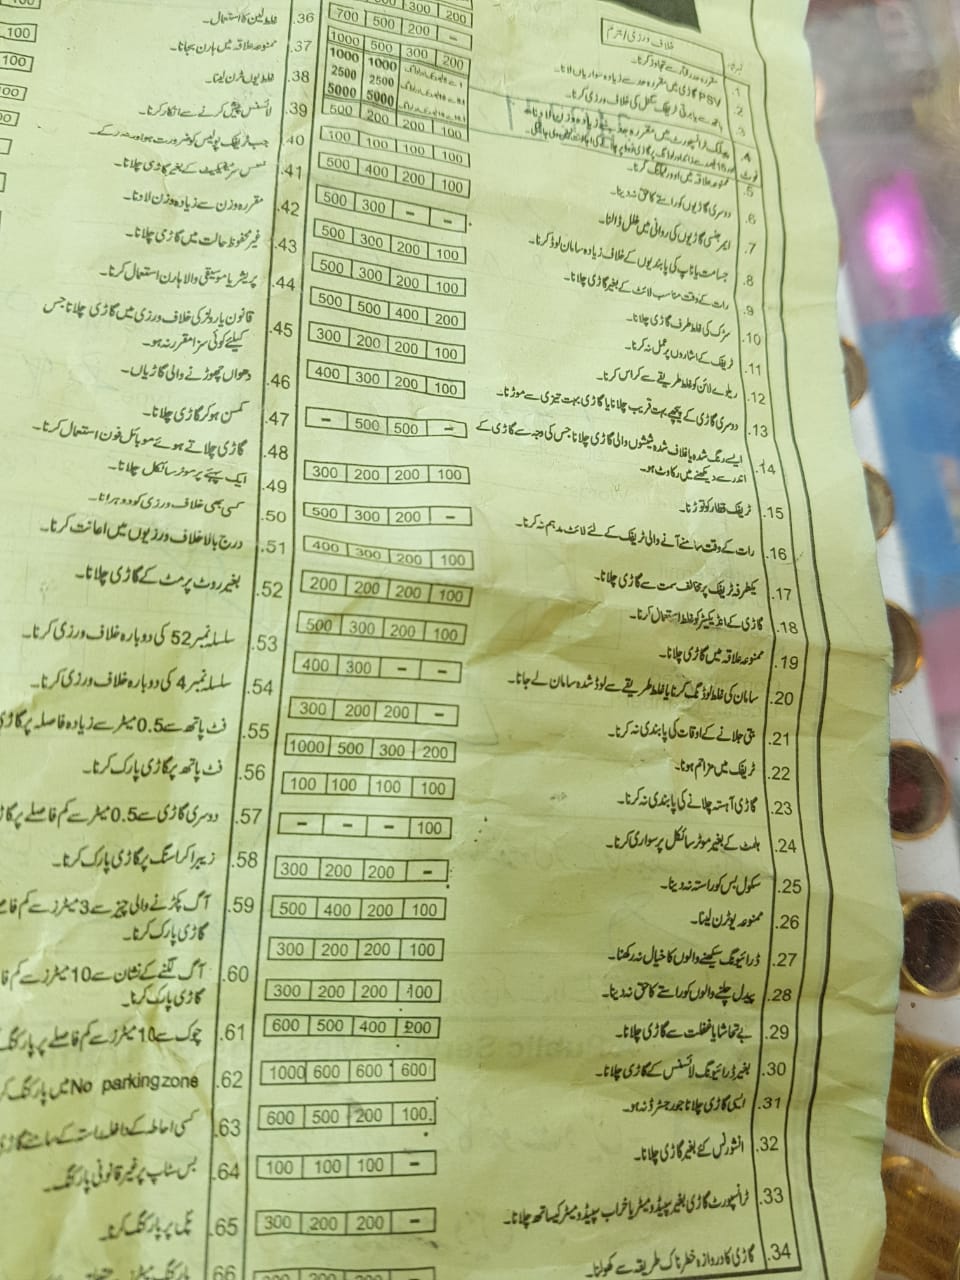 خلاف ورزی/جرم
1. مقررہ حد رفتار سے تجاوز کرنا۔
2. PSV گاڑی میں مقررہ حد سے زیادہ سواریاں لانا۔
3. کی خلاف ورزی کرنا۔
4. پبلک ٹرانسپورٹ میں مقررہ حد سے زیادہ وزن لادنا
5. ممنوعہ علاقہ میں اوورٹیکنگ کرنا۔
6. دوسری گاڑیوں کو راستے کا حق نہ دینا۔
7. ایمرجنسی گاڑیوں کی روانی میں خلل ڈالنا۔
8. جسامت یا ناپ کی پابندیوں کے خلاف زیادہ سامان لوڈ کرنا۔
9. رات کے وقت مناسب لائٹ کے بغیر گاڑی چلانا۔
10. سڑک کی غلط طرف گاڑی چلانا۔
11. ٹریفک کے اشاروں پر عمل نہ کرنا۔
12. ریلوے لائن کو غلط طریقے سے کراس کرنا۔
13. دوسری گاڑی کے پیچھے بہت قریب چلانا یا گاڑی بہت تیزی سے موڑنا۔
14. ایسے رنگ شدہ یا غلاف شدہ شیشوں والی گاڑی چلانا جس کی وجہ سے گاڑی کے
اندر سے دیکھنے میں رکاوٹ ہو۔
15. ٹریفک قطار کو توڑنا۔
16. رات کے وقت سامنے آنے والی ٹریفک کے لئے لائٹ مدہم نہ کرنا۔
17. یکطرفہ ٹریفک پر مخالف سمت سے گاڑی چلانا۔
18. گاڑی کے انڈیکیٹر کو غلط استعمال کرنا۔
19. ممنوعہ علاقہ میں گاڑی چلانا۔
20. سامان کی غلط لوڈنگ کرنا یا غلط طریقے سے لوڈ شدہ سامان لے جانا۔
21. بتی جلانے کے اوقات کی پابندی نہ کرنا۔
22. ٹریفک میں مزاحم ہونا۔
23. گاڑی آہستہ چلانے کی پابندی نہ کرنا۔
24. ہلمٹ کے بغیر موٹر سائکل پر سواری کرنا۔
25. سکول بس کو راستہ نہ دینا۔
26. ممنوعہ یوٹرن لینا۔
27. ڈرائیونگ سیکھنے والوں کا خیال نہ رکھنا۔
28. پیدل چلنے والوں کو راستے کا حق نہ دینا۔
29. بے تحاشا یا غفلت سے گاڑی چلانا۔
30. بغیر ڈرائیونگ لائسنس کے گاڑی چلانا۔
31. ایسی گاڑی چلانا جو رجسٹرڈ نہ ہو۔
32. انشورنس کئے بغیر گاڑی چلانا۔
33. ٹرانسپورٹ گاڑی بغیر سپیڈومیٹر یا خراب سپیڈومیٹر کیساتھ چلانا۔
34. گاڑی کا دروازہ خطرناک طریقہ سے کھولنا۔
300 200
700 500 200 –
1000 500 300 200
1000 1000
2500 2500
5000 5000
500 200 200 100
100 100 100 100
500 400 200 100
500 300 – –
500 300 200 100
500 300 200 100
500 500 400 200
300 200 200 100
400 300 200 100
– 500 500 –
300 200 200 100
500 300 200 –
400 300 200 100
200 200 200 100
500 300 200 100
400 300 – –
300 200 200 –
1000 500 300 200
100 100 100 100
– – – 100
300 200 200 –
500 400 200 100
300 200 200 100
300 200 200 100
600 500 400 200
1000 600 600 600
600 500 200 100
100 100 100 –
300 200 200 –
36. غلط لین کا استعمال۔
37. ممنوعہ علاقہ میں ہارن بجانا۔
38. غلط یوں ٹرن لینا۔
39. لائسنس پیش کرنے سے انکار کرنا۔
40. جب ٹریفک پولیس کو ضرورت ہو
41. فٹنس سرٹیفکیٹ کے بغیر گاڑی چلانا۔
42. مقررہ وزن سے زیادہ وزن لادنا۔
43. غیر محفوظ حالت میں گاڑی چلانا۔
44. پریشر یا موسیقی والا ہارن استعمال کرنا۔
45. قانون یا رولز کی خلاف ورزی میں گاڑی چلانا جس
کیلئے کوئی سزا مقرر نہ ہو۔
46. دھواں چھوڑنے والی گاڑیاں۔
47. کمسن ہو کر گاڑی چلانا۔
48. گاڑی چلاتے ہوئے موبائل فون استعمال کرنا۔
49. ایک پہیے پر موٹر سائکل چلانا۔
50. کسی بھی خلاف ورزی کو دوہرانا۔
51. درج بالا خلاف ورزیوں میں اعانت کرنا۔
52. بغیر روٹ پرمٹ کے گاڑی چلانا۔
53. سلسلہ نمبر 52 کی دوبارہ خلاف ورزی کرنا۔
54. سلسلہ نمبر 4 کی دوبارہ خلاف ورزی کرنا۔
55. فٹ پاتھ سے 0.5 میٹر سے زیادہ فاصلہ پر گاڑی
56. فٹ پاتھ پر گاڑی پارک کرنا۔
57. دوسری گاڑی سے 0.5 میٹر سے کم فاصلے پر
58. زیبرا کراسنگ پر گاڑی پارک کرنا۔
59. آگ پکڑنے والی چیز سے 3 میٹرز سے کم
گاڑی پارک کرنا۔
60. آگ لگنے کے نشان سے 10 میٹرز سے کم
گاڑی پارک کرنا۔
61. چوک سے 10 میٹرز سے کم فاصلے پر پارکنگ
62. No parking zone میں پارکنگ
63. کسی احاطہ کے داخلہ راستہ کے سامنے گاڑی
64. بس سٹاپ پر غیر قانونی پارکنگ۔
65. پل پر پارکنگ کرنا۔
66.
100
100